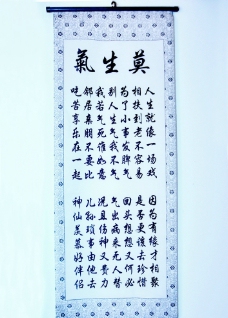 莫生氣
人生就像一场戏 因为有缘才相聚
相扶到老不容易 是否更该去珍惜
为了小事发脾气 回头想想又何必
别人生气我不气 气出病来无人替
我若气死谁如意 况且伤神又费力
邻居亲朋不要比 儿孙琐事由他去
吃苦享乐在一起 神仙羡慕好伴侣